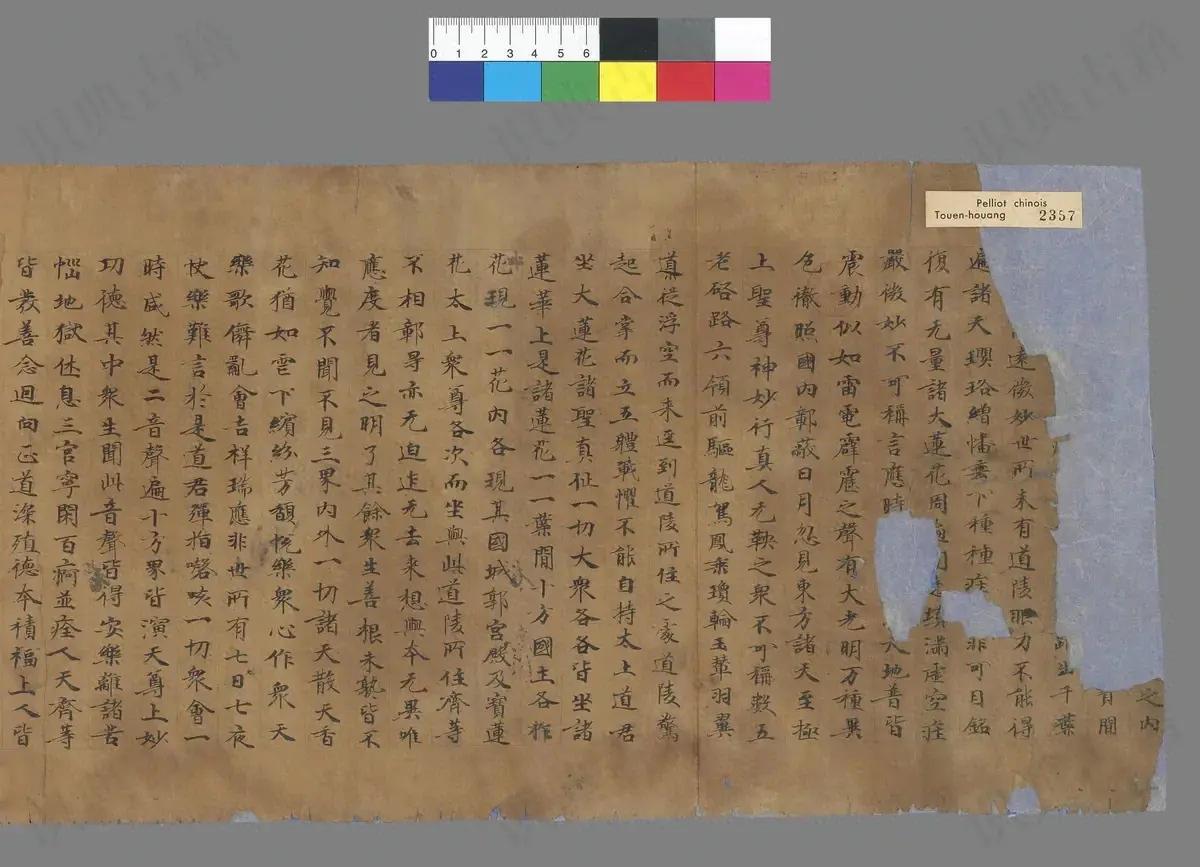 Pelliot chinois
Touen-houang 2357
0 1 2 3 4 5 6
之內
間
出千葉
遠微妙世所未有道陵眼力不能得
遍諸天瓔珞繒幡垂下種種 非可目銘
復有无量諸大蓮花周 滿虛空莊
嚴微妙不可稱言應時 大地普皆
震動似如雷電霹靂之聲有大光明万種異
色徹照國內鄣蔽日月忽見東方諸天至極
上聖尊神妙行真人无鞅之眾不可稱數五
老硌路六領前驅龍駕鳳乘瓊輪玉輦羽翼
導從浮空而來逕到道陵所住之處道陵驚
起合掌而立五體戰懼不能自持太上道君
坐大蓮花諸聖真仙一切大眾各各皆坐諸
蓮華上是諸蓮花一一葉間十方國土各柞
花現一一花內各現其國城郭宮殿及寶蓮
花太上眾尊各次而坐與此道陵所住齊等
不相鄣㝵亦无迫迮无去來想與本无異唯
應度者見之明了其餘眾生善根未熟皆不
知覺不聞不見三界內外一切諸天散天香
花猶如雲下繽紛芳馥悅樂眾心作眾天
樂歌儛亂會吉祥瑞應非世所有七日七夜
快樂難言於是道君彈指謦咳一切眾會一
時咸然是二音聲遍十方界皆演天尊上妙
功德其中眾生聞此音聲皆得安樂離諸苦
惱地獄休息三官寧閑百痾並痊人天齊等
皆發善念迴向正道深殖德本積福上人皆